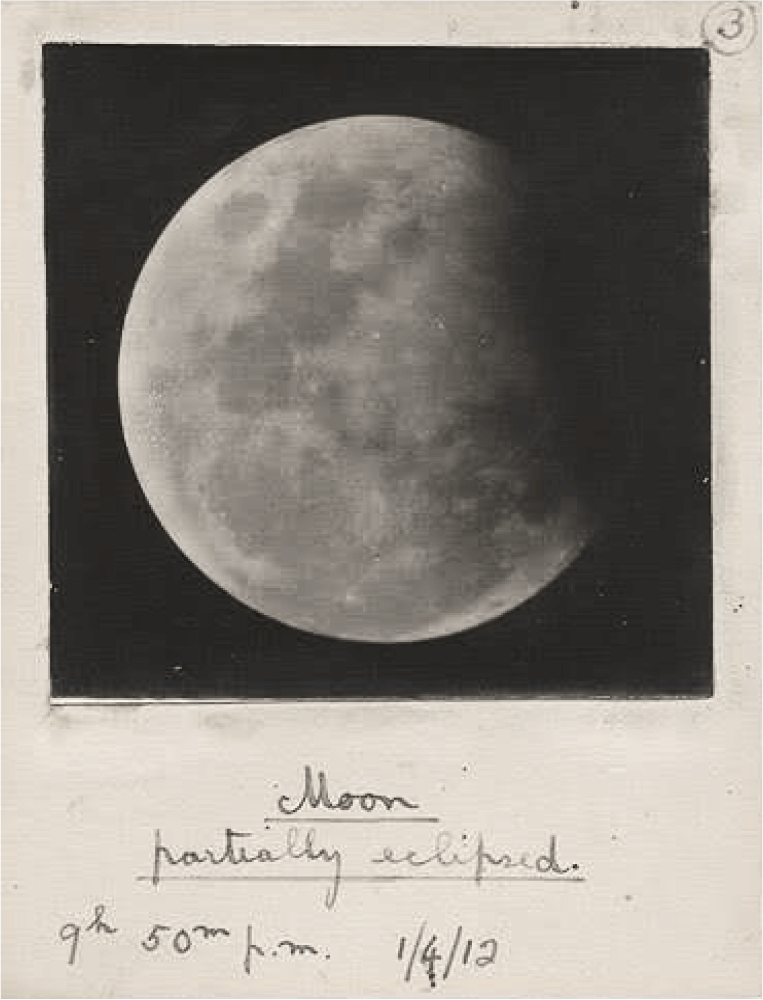 3
Moon
partially eclipsed.
9h 50m p.m. 1/4/12